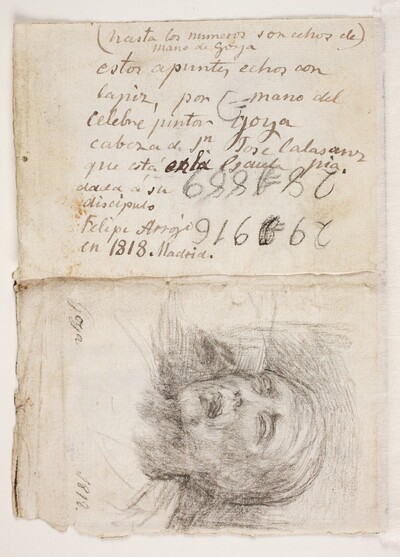 (hasta los numeros son echos de)
mano de Goya
estos apuntes echos con
lapiz, por (= mano del
Celebre pintor Goya
cabeza de Sn Jose Calasanz
que está en la Escuela Pia.
dada á su
discipulo
Felipe Arrojo
en 1818. Madrid.
Goya